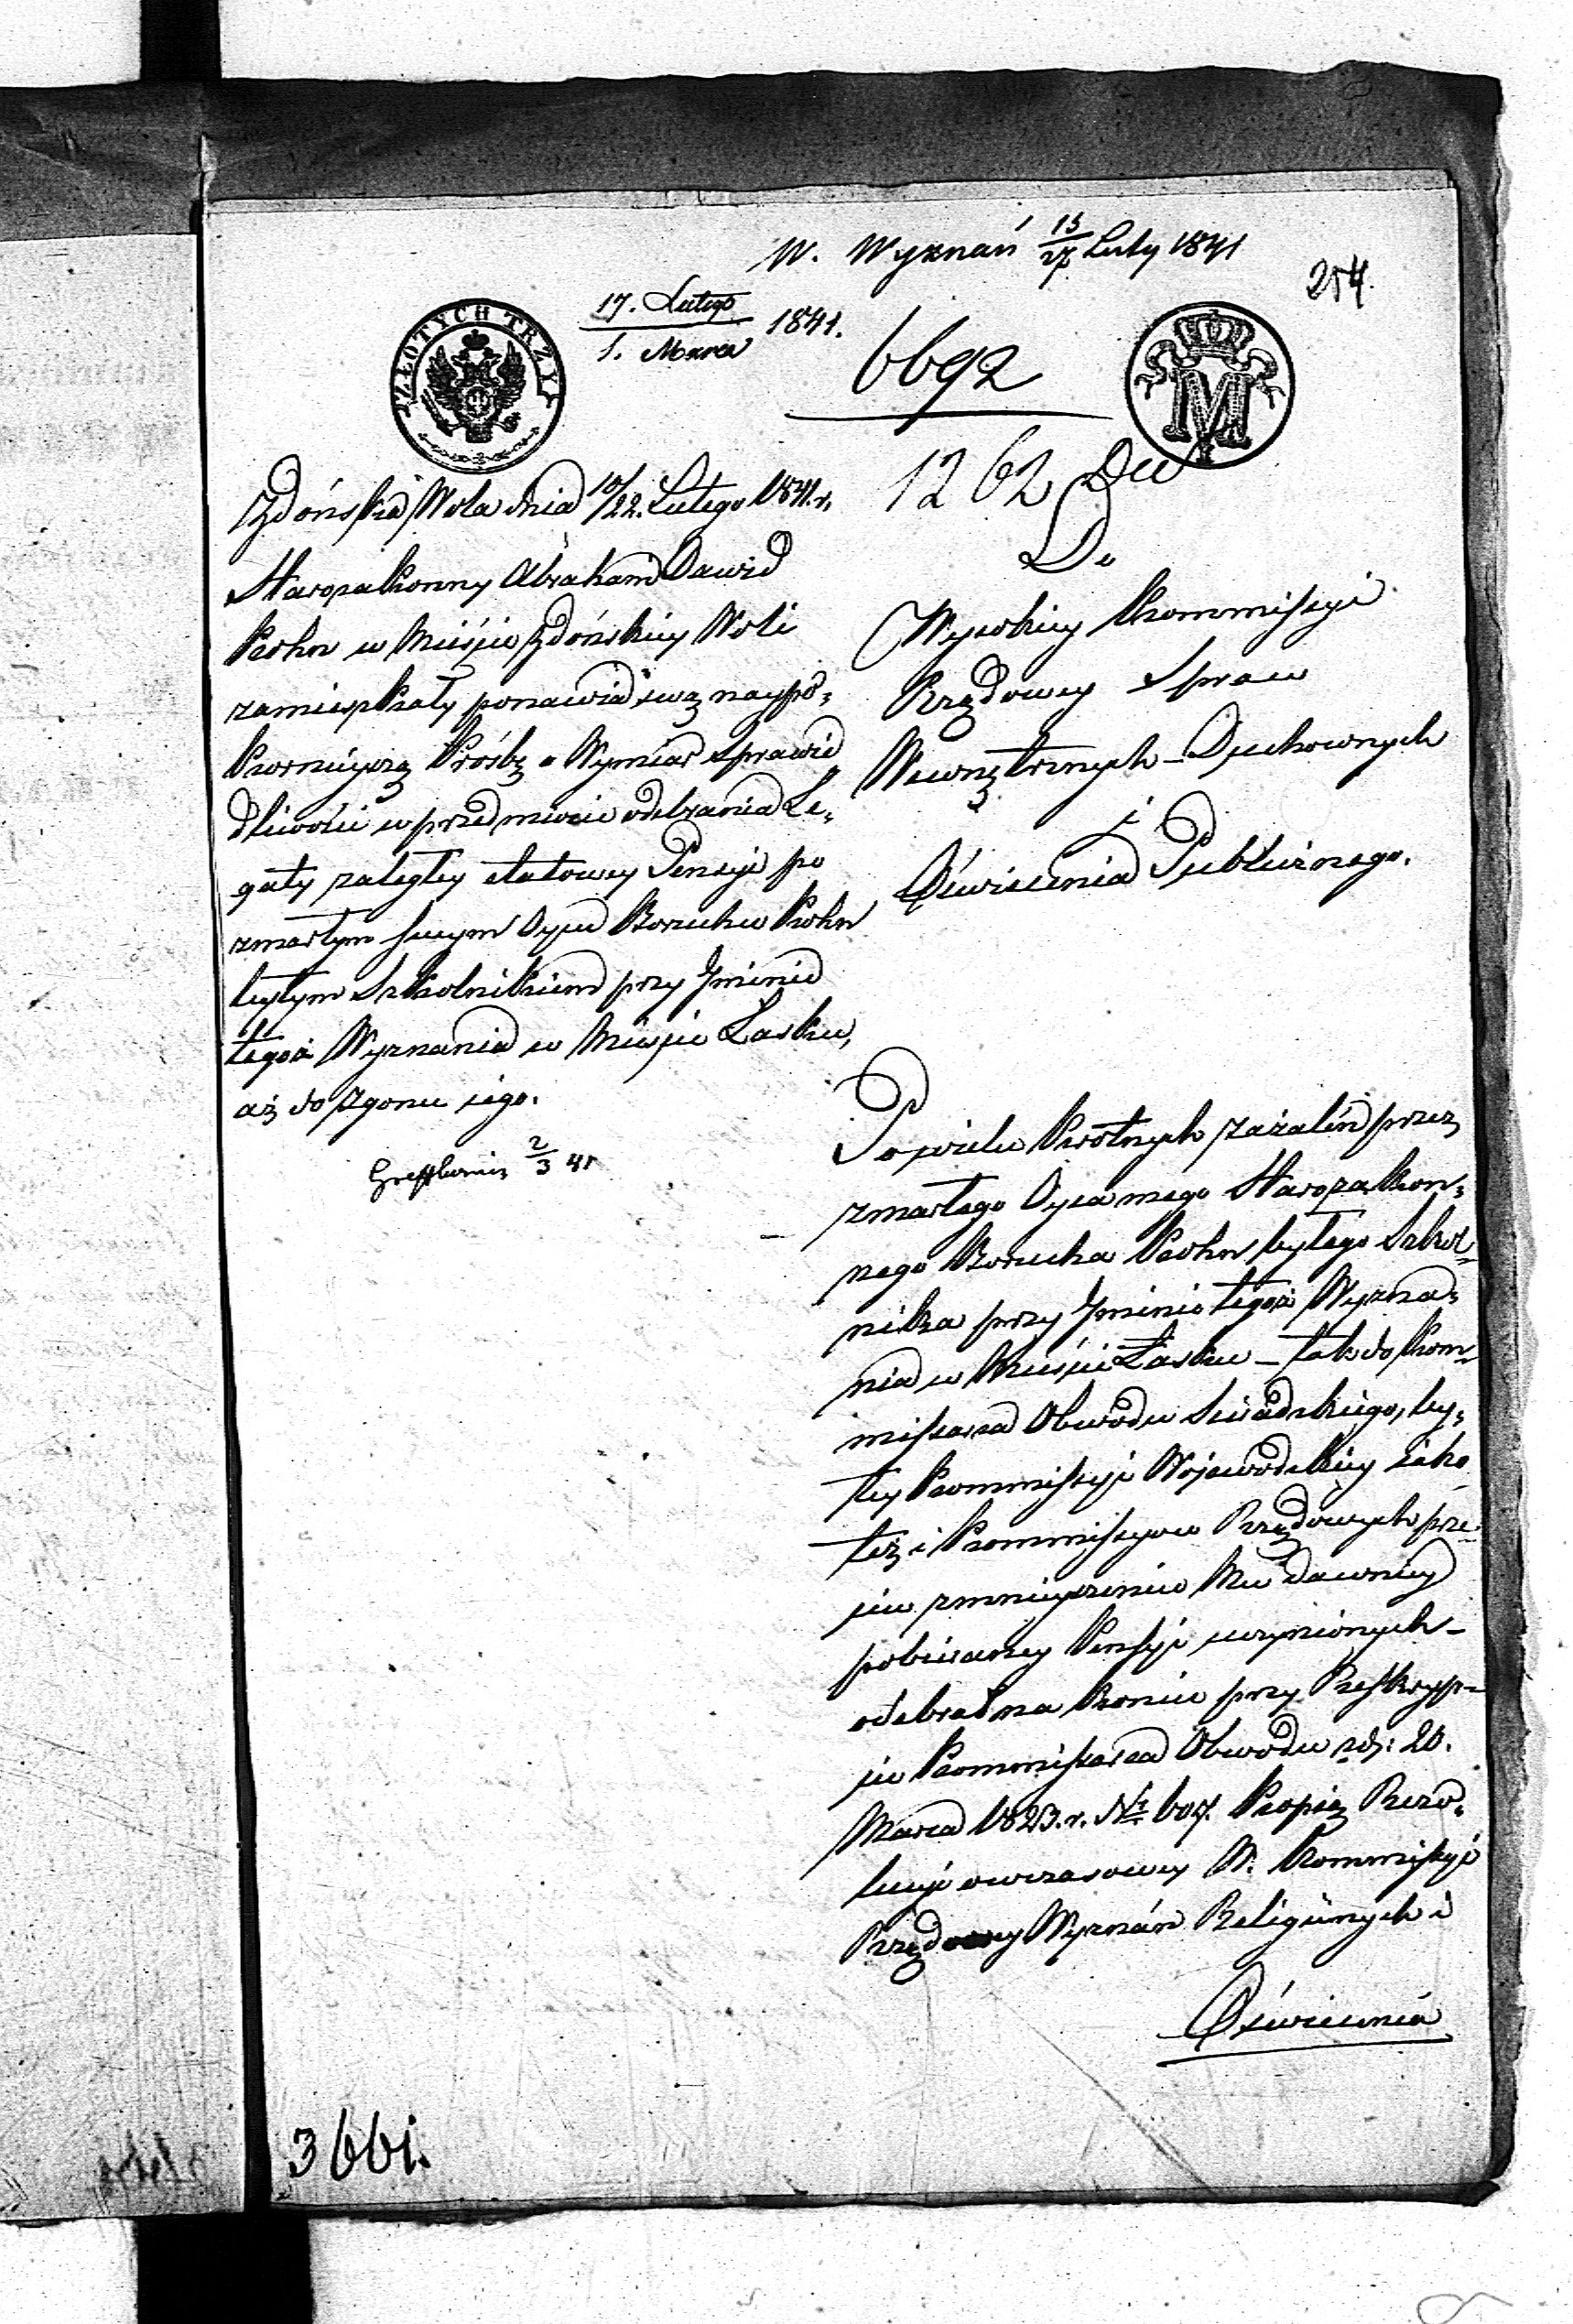 W. Wyznań 15/27 Luty 1841
254.
17. Lutego
1. Marca 1841.
ZŁOTYCH TRZY
6692
M
1262
Zdońska Wola dnia 10/22. Lutego 1841. r.
Starozakonny Abraham Dawid
Kohn w Mieście Zdońskiey Woli
zamieszkały ponawia swą naypo-
kornieyszą Prośbę o Wymiar Sprawie
dliwości w przedmiocie odebrania Le-
gały zaległey etatowey Pensyi po
zmarłym swym Oycu Boruchu Kohn
byłym Szkolnikiem przy Gminie
tegoż Wyznania w Mieście Łasku,
aż do zgonu iego.
2/3 41
Do
Wysokiey Kommissyi
Rządowey Spraw
Wewnętrznych – Duchownych
i
Oświecenia Publicznego.
Po wielu krotnych zażaleń przez
zmarłego Oyca mego Starozakon-
nego Borucha Kohn byłego Szkol-
nika przy Gminie tegoż Wyzna-
nia w Mieście Łasku – tak do Kom-
missarza Obwodu Sieradzkiego, by-
łey Kommissyi Wojewodzkiey iako
też i Kommissyow Rządowych prze-
ciw zmnieyszeniu Mu dawniey
pobieraney Pensyi uczynionych –
odebrał na koniec przy Reskryp-
cie Kommissarza Obwodu zd: 20.
Marca 1823. r. Nr 607. Kopią Rezo-
lucyi owczasowey W. Kommissyi
Rządowey Wyznań Religiinych i
Oświecenia
3661.